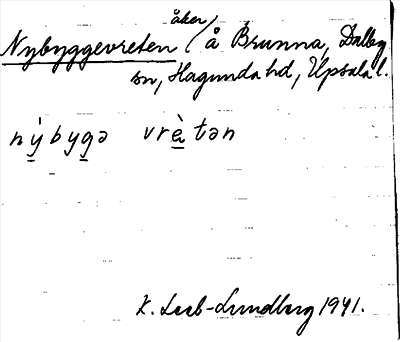 åker
Nybyggevreten / å Brunna, Dalby
sn, Hagunda hd, Upsala l.
nỳbygə vrètən
K. Leeb-Lundberg 1941.